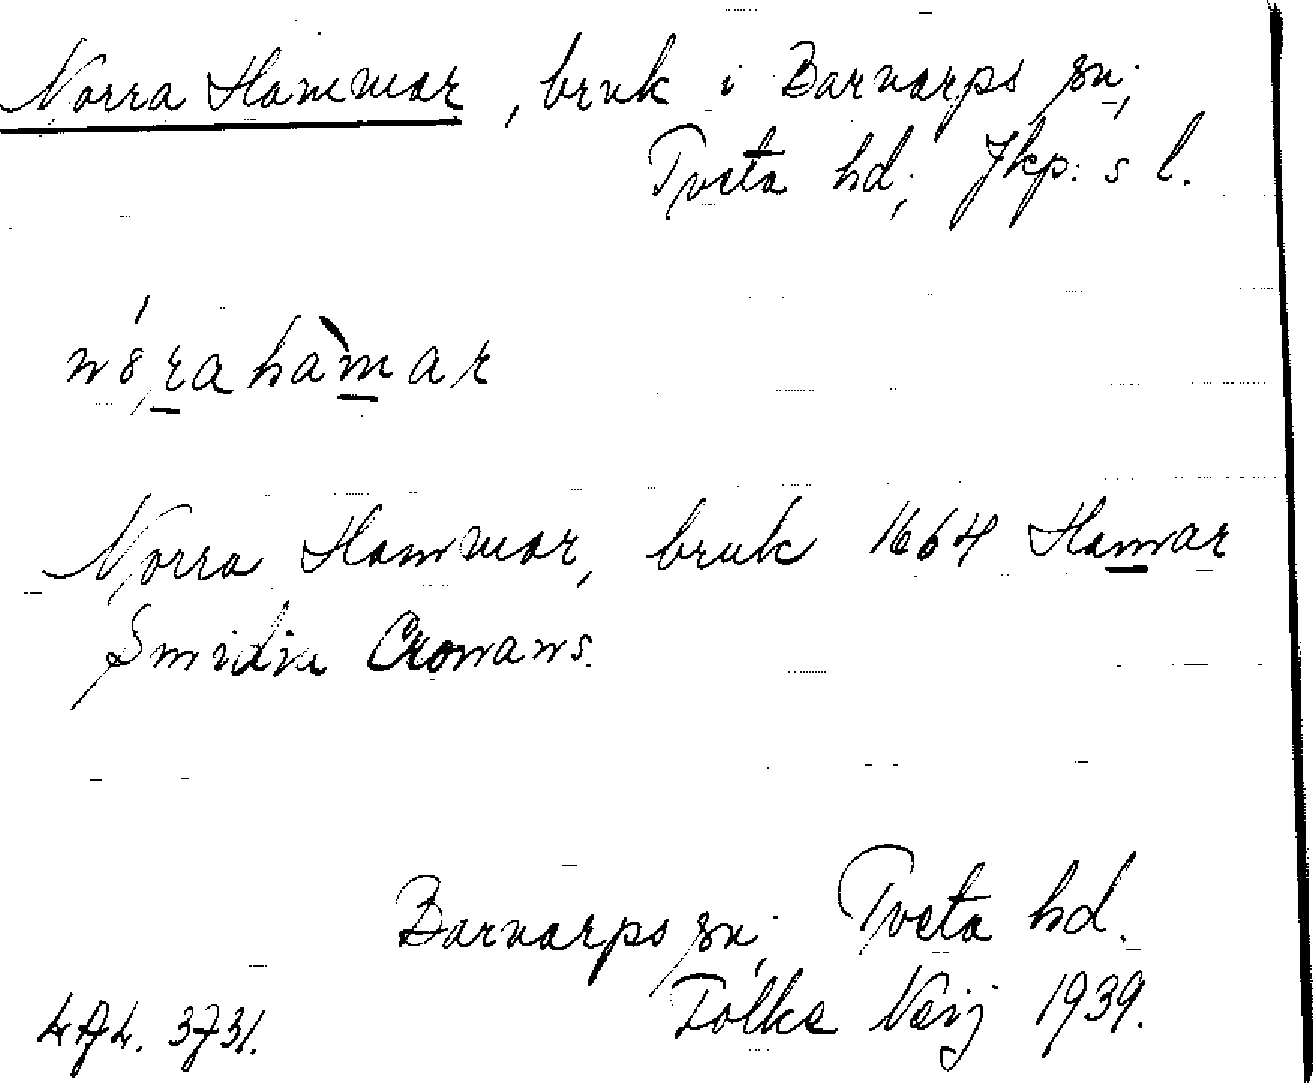 Norra Hammar, bruk i Barnarps sn;
Tveta hd; Jkp:s l.
Norra Hammar, bruk 1664 Hamar
Smidie Cronans.
Barnarps sn; Tveta hd.
Folke 1939.
3731.